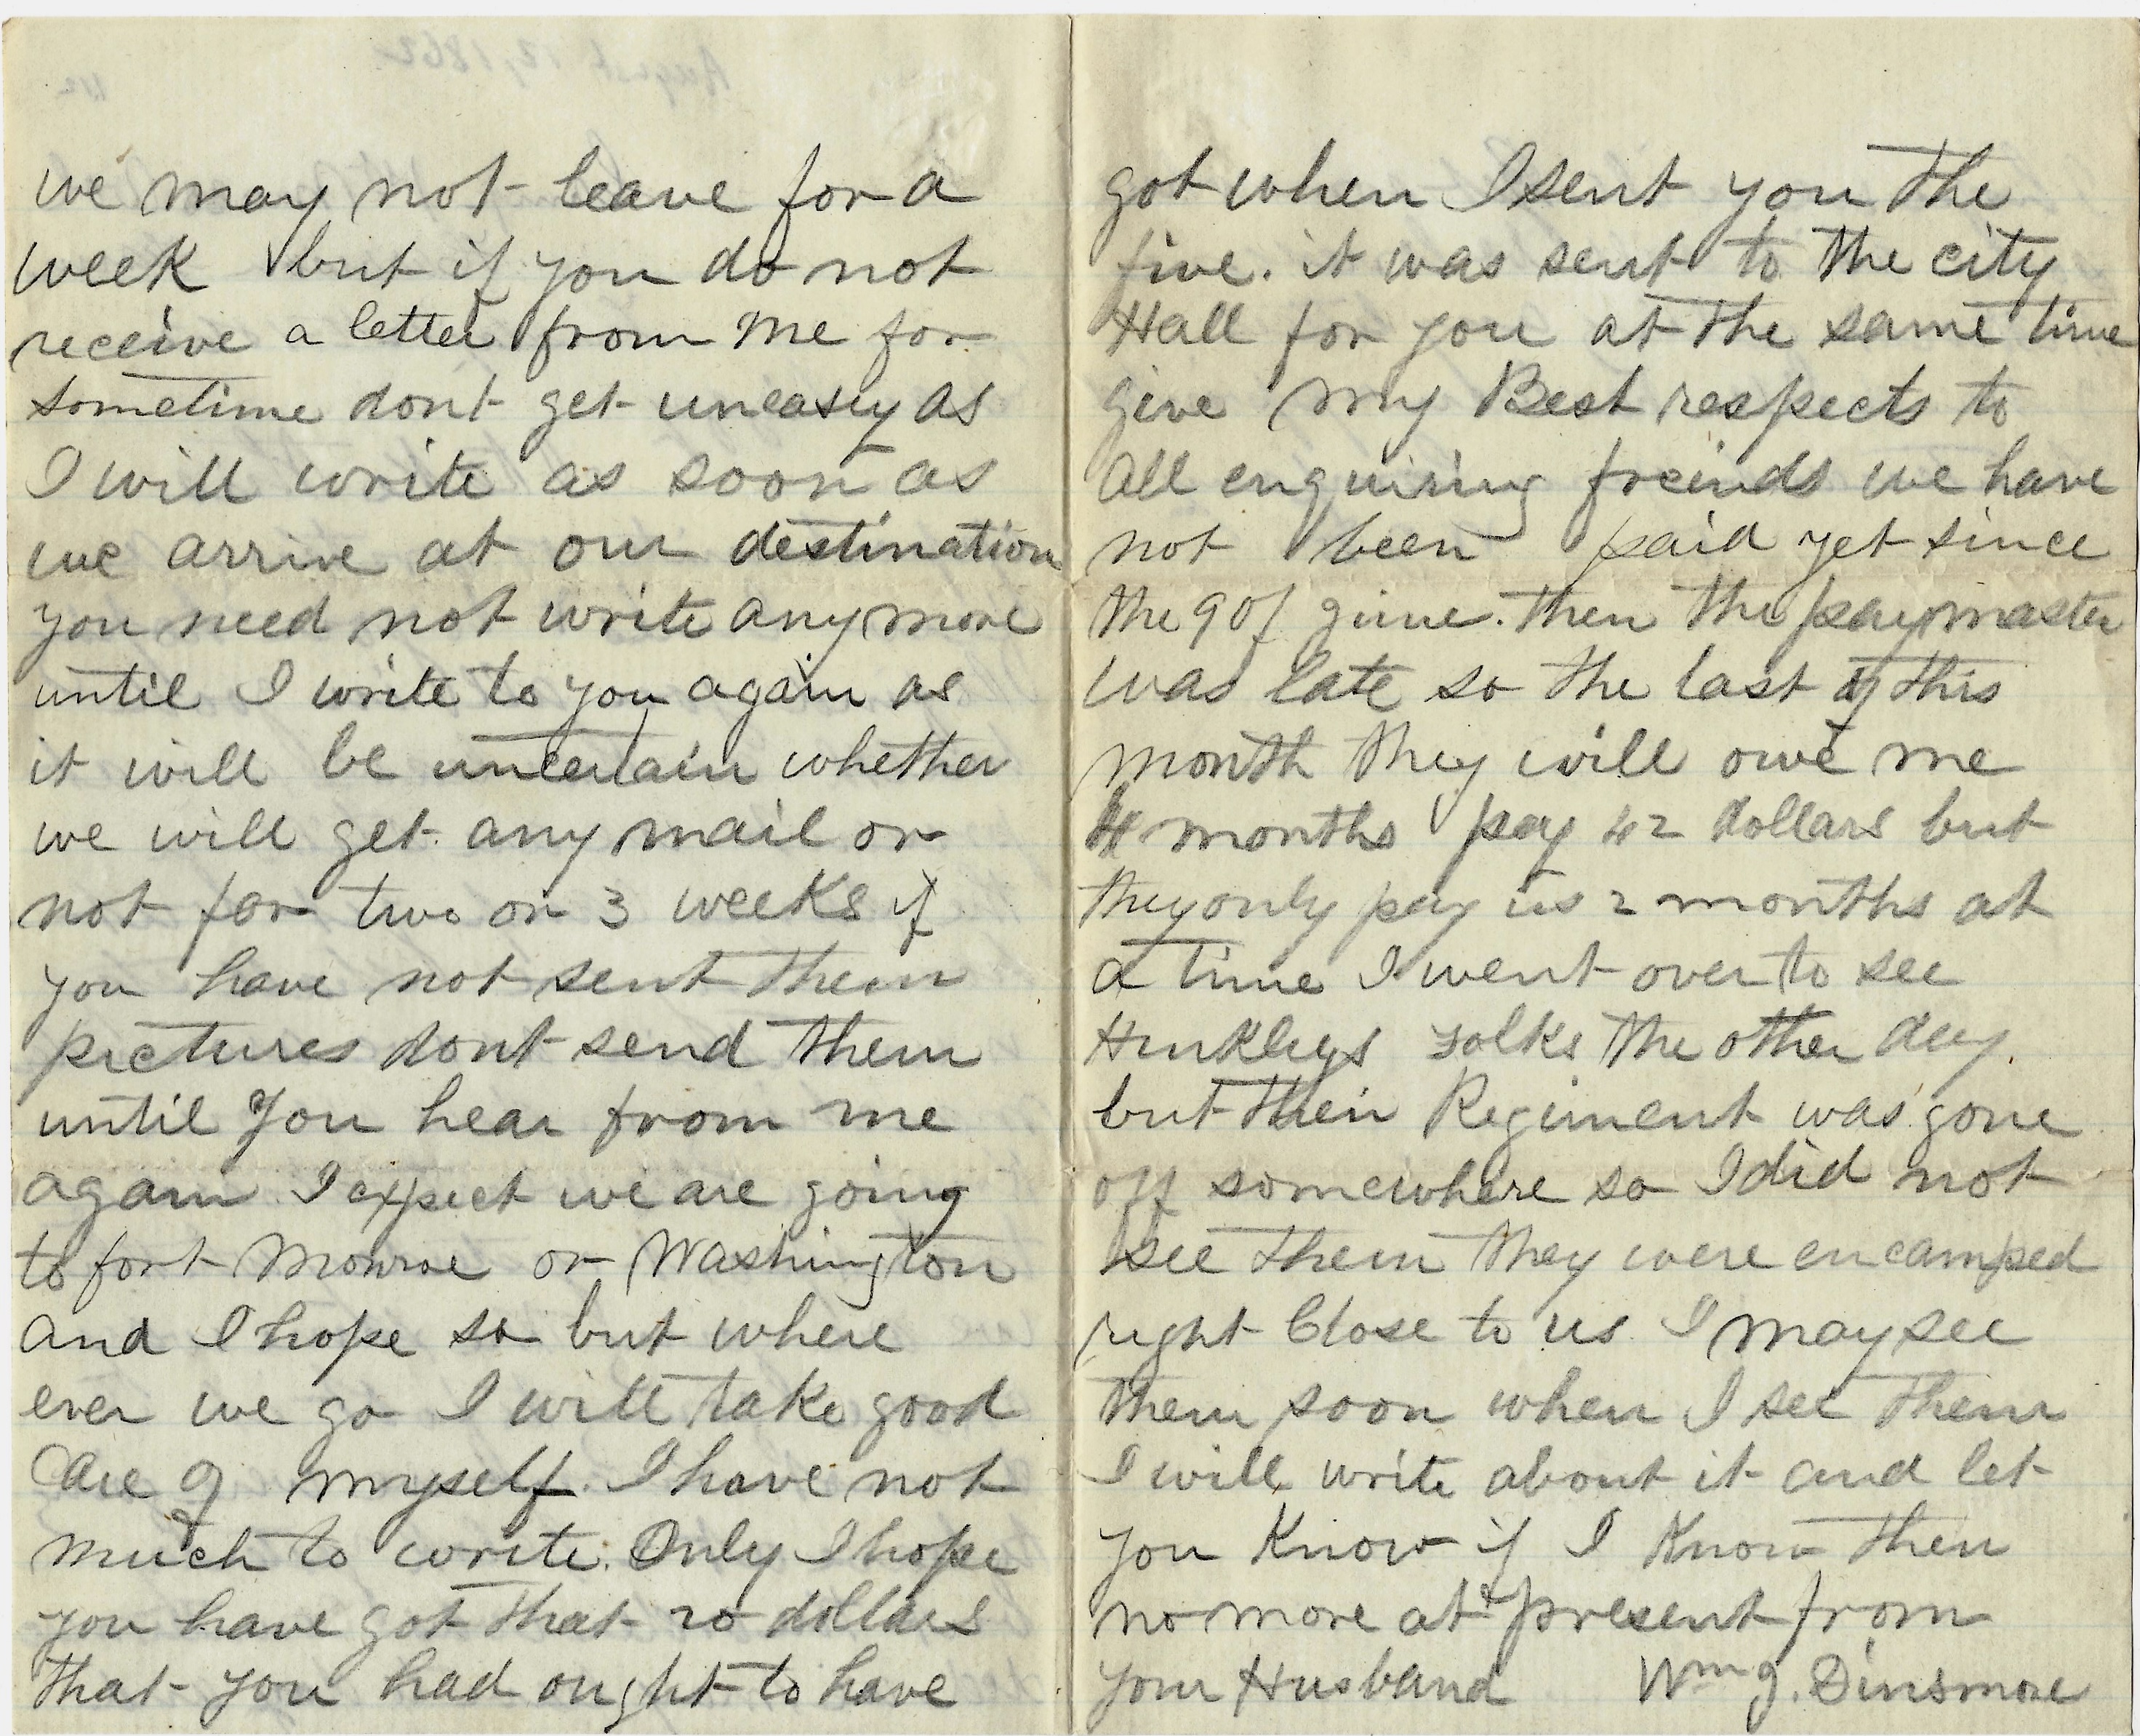 August 12, 1862
we may not leave for a
week but if you do not
receive a letter from me for
sometime dont get uneasy as
I will write as soon as
we arrive at our destination
you need not write any more
until I write to you again as
it will be uncertain whether
we will get any mail or
not for two or 3 weeks if
you have not sent them
pictures dont send them
until you hear from me
again I expect we are going
to fort Monroe or Washington
and I hope so but where
ever we go I will take good
Care of myself. I have not
much to write. Only I hope
you have got that 20 dollars
that you had ought to have
got when I sent you the
five. it was sent to the city
Hall for you at the same time
give my Best respects to
all enquiring freinds we have
not been paid yet since
the 9 of june. then the paymaster
was late so the last of this
month they will owe me
4 months pay 42 dollars but
they only pay us 2 months at
a time I went over to see
Hinkleys folks the other day.
but their Regiment was gone
off somewhere so I did not
see them they were encamped
right Close to us I may see
them soon when I see them
I will write about it and let
you Know if I Know then
no more at present from
your Husband Wm J. Dinsmore